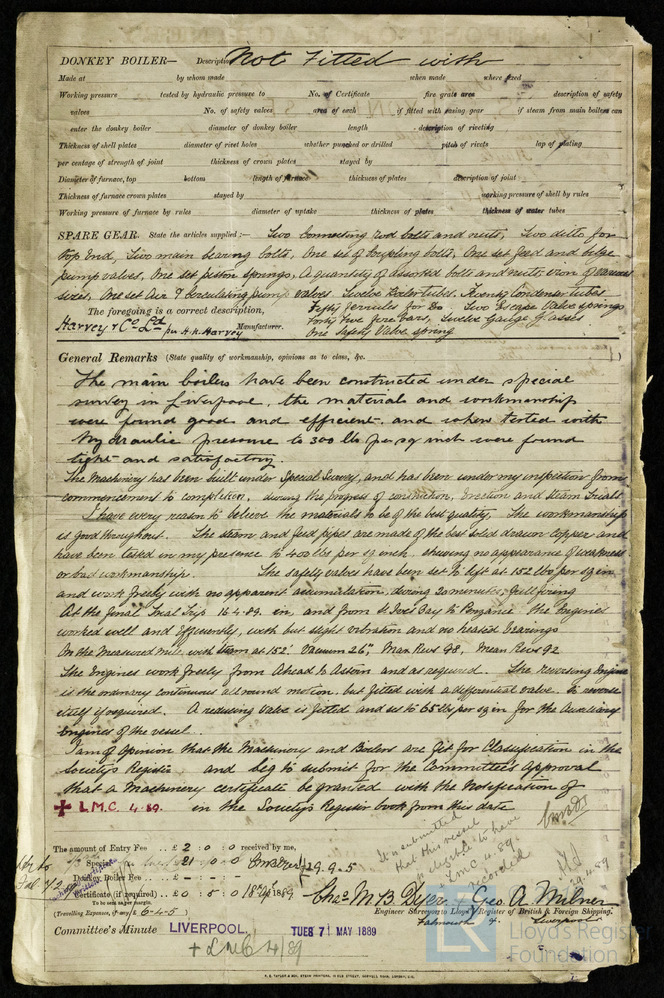 DONKEY BOILER— Description Not Fitted with
Made at by whom made when made where fixed
Working pressure tested by hydraulic pressure to No. of Certificate fire grate area description of safety
valves No. of safety valves area of each if fitted with easing gear if steam from main boilers can
enter the donkey boiler diameter of donkey boiler length description of riveting
Thickness of shell plates diameter of rivet holes whether punched or drilled pitch of rivets lap of plating
per centage of strength of joint thickness of crown plates stayed by
Diameter of furnace, top bottom length of furnace thickness of plates description of joint
Thickness of furnace crown plates stayed by working pressure of shell by rules
Working pressure of furnace by rules diameter of uptake thickness of plates thickness of water tubes
SPARE GEAR. State the articles supplied:— Two connecting rod bolts and nuts, Two ditto for
top end, Two main bearing bolts, One set of Coupling bolts, One set feed and bilge
pump valves, One set piston springs, A quantity of assorted bolts and nuts iron of various
sizes, One set Air & Circulating pump valves Twelve boiler tubes. Twenty Condenser tubes
Fifty ferrules for Do. Two Escape Valve springs
The foregoing is a correct description,
Forty two fire bars, Twelve Gauge Glasses
Harvey & Co Ld per H.N. Harvey Manufacturer.
One Safety Valve spring
General Remarks (State quality of workmanship, opinions as to class, &c.
The main boilers have been constructed under special
survey in Liverpool, the materials and workmanship
were found good and efficient, and when tested with
hydraulic pressure to 300 lbs per sq inch were found
tight and satisfactory.
The Machinery has been built under Special Survey, and has been under my inspection from
commencement to completion, during the progress of construction, Erection and Steam Trials
I have every reason to believe the materials to be of the best quality. The workmanship
is good throughout. The steam and feed pipes are made of the best solid drawn copper and
have been tested in my presence to 400 lbs per sq inch, shewing no appearance of weakness
or bad workmanship. The safety valves have been set to lift at 152 lbs per sq in
and work freely with no apparent accumulation, during 20 minutes, full firing
At the final Trial Trip 16.4.89. in, and from St Ives Bay to Penzance the Engines
worked well and Efficiently, with but slight vibration and no heated bearings
On the Measured mile, with steam at 152. Vacuum 26", Max Revs 98, Mean Revs 92
The Engines work freely from Ahead to Astern and as required. The reversing Engine
is the ordinary continuous all round motion, but fitted with a differential valve. to reverse
itself if required. A reducing valve is fitted and set to 65 lbs per sq in for the Auxiliary
Engines of the vessel.
I am of opinion that the Machinery and Boilers are fit for Classification in the
Society's Register and beg to submit for the Committee's approval
that a Machinery certificate be granted with the Notification of
+ L.M.C. 4.89. in the Society's Register book from this date
It is submitted
that this vessel
is eligible to have
+ LMC 4.89.
recorded
The amount of Entry Fee .. £ 2 : 0 : 0 received by me,
Special .. £ 21 : 0 : 0 29.9.5
Donkey Boiler Fee .. £
Certificate (if required) .. £ 0 : 5 : 0 18th/4/1889
To be sent as per margin.
(Travelling Expenses, if any, £ 6-4-5)
Chas M. B. Dyer & Geo. A. Milner
Engineer Surveyor to Lloyd's Register of British & Foreign Shipping.
Falmouth & Liverpool
Committee's Minute LIVERPOOL. TUES 7 MAY 1889
+ LMC 4/89
Lloyd's Register
Foundation